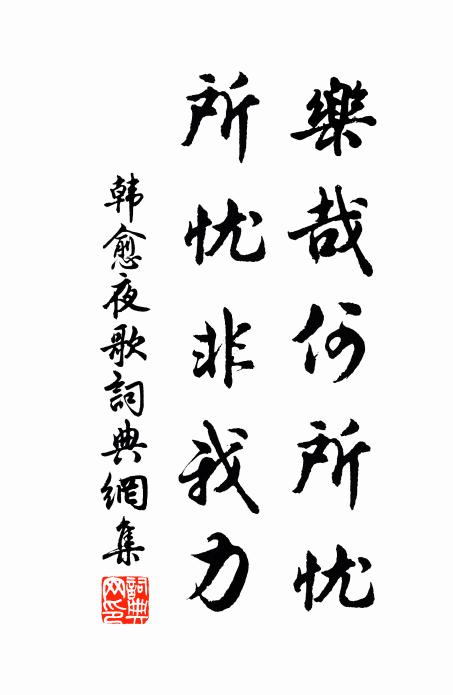 樂哉何所忧
所忧非我力
韩愈夜歌詞典網集
詞典网印